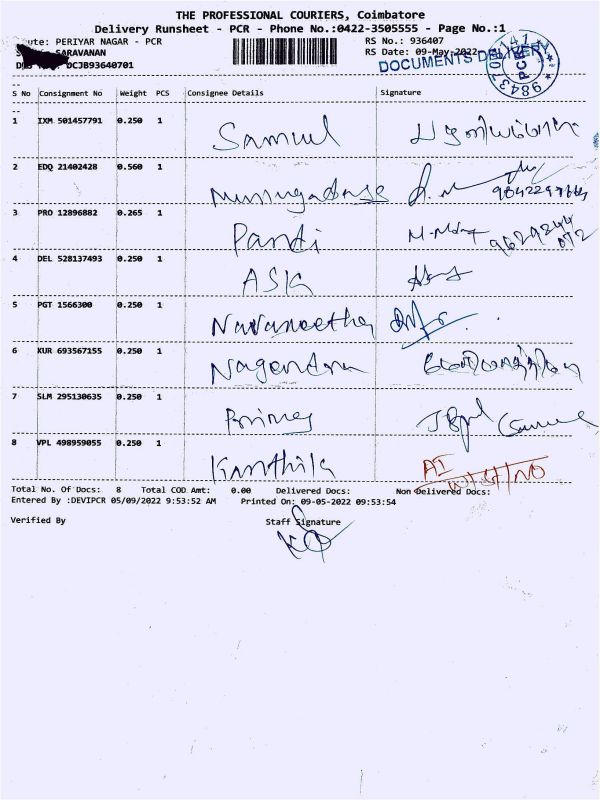 THE PROFESSIONAL COURIERS, Coimbatore
Delivery Runsheet - PCR - Phone No.:0422-3505555 - Page No.:1
Route: PERIYAR NAGAR - PCR RS No.: 936407
SARAVANAN RS Date: 09-May-2022
DOCUMENTS DELIVERY
PCR
DCJB93640701
S No Consignment No Weight PCS Consignee Details Signature
1 IXM 501457791 0.250 1 Samuel
2 EDQ 21402428 0.560 1
3 PRO 12896882 0.265 1 Pandi
4 DEL 528137493 0.250 1 ASK
5 PGT 1566300 0.250 1 Navaneetha
6 KUR 693567155 0.250 1 Nagendra
7 SLM 295130635 0.250 1
8 VPL 498959055 0.250 1 Karthik
Total No. Of Docs: 8 Total COD Amt: 0.00 Delivered Docs: Non Delivered Docs:
Entered By :DEVIPCR 05/09/2022 9:53:52 AM Printed On: 09-05-2022 09:53:54
Verified By Staff Signature